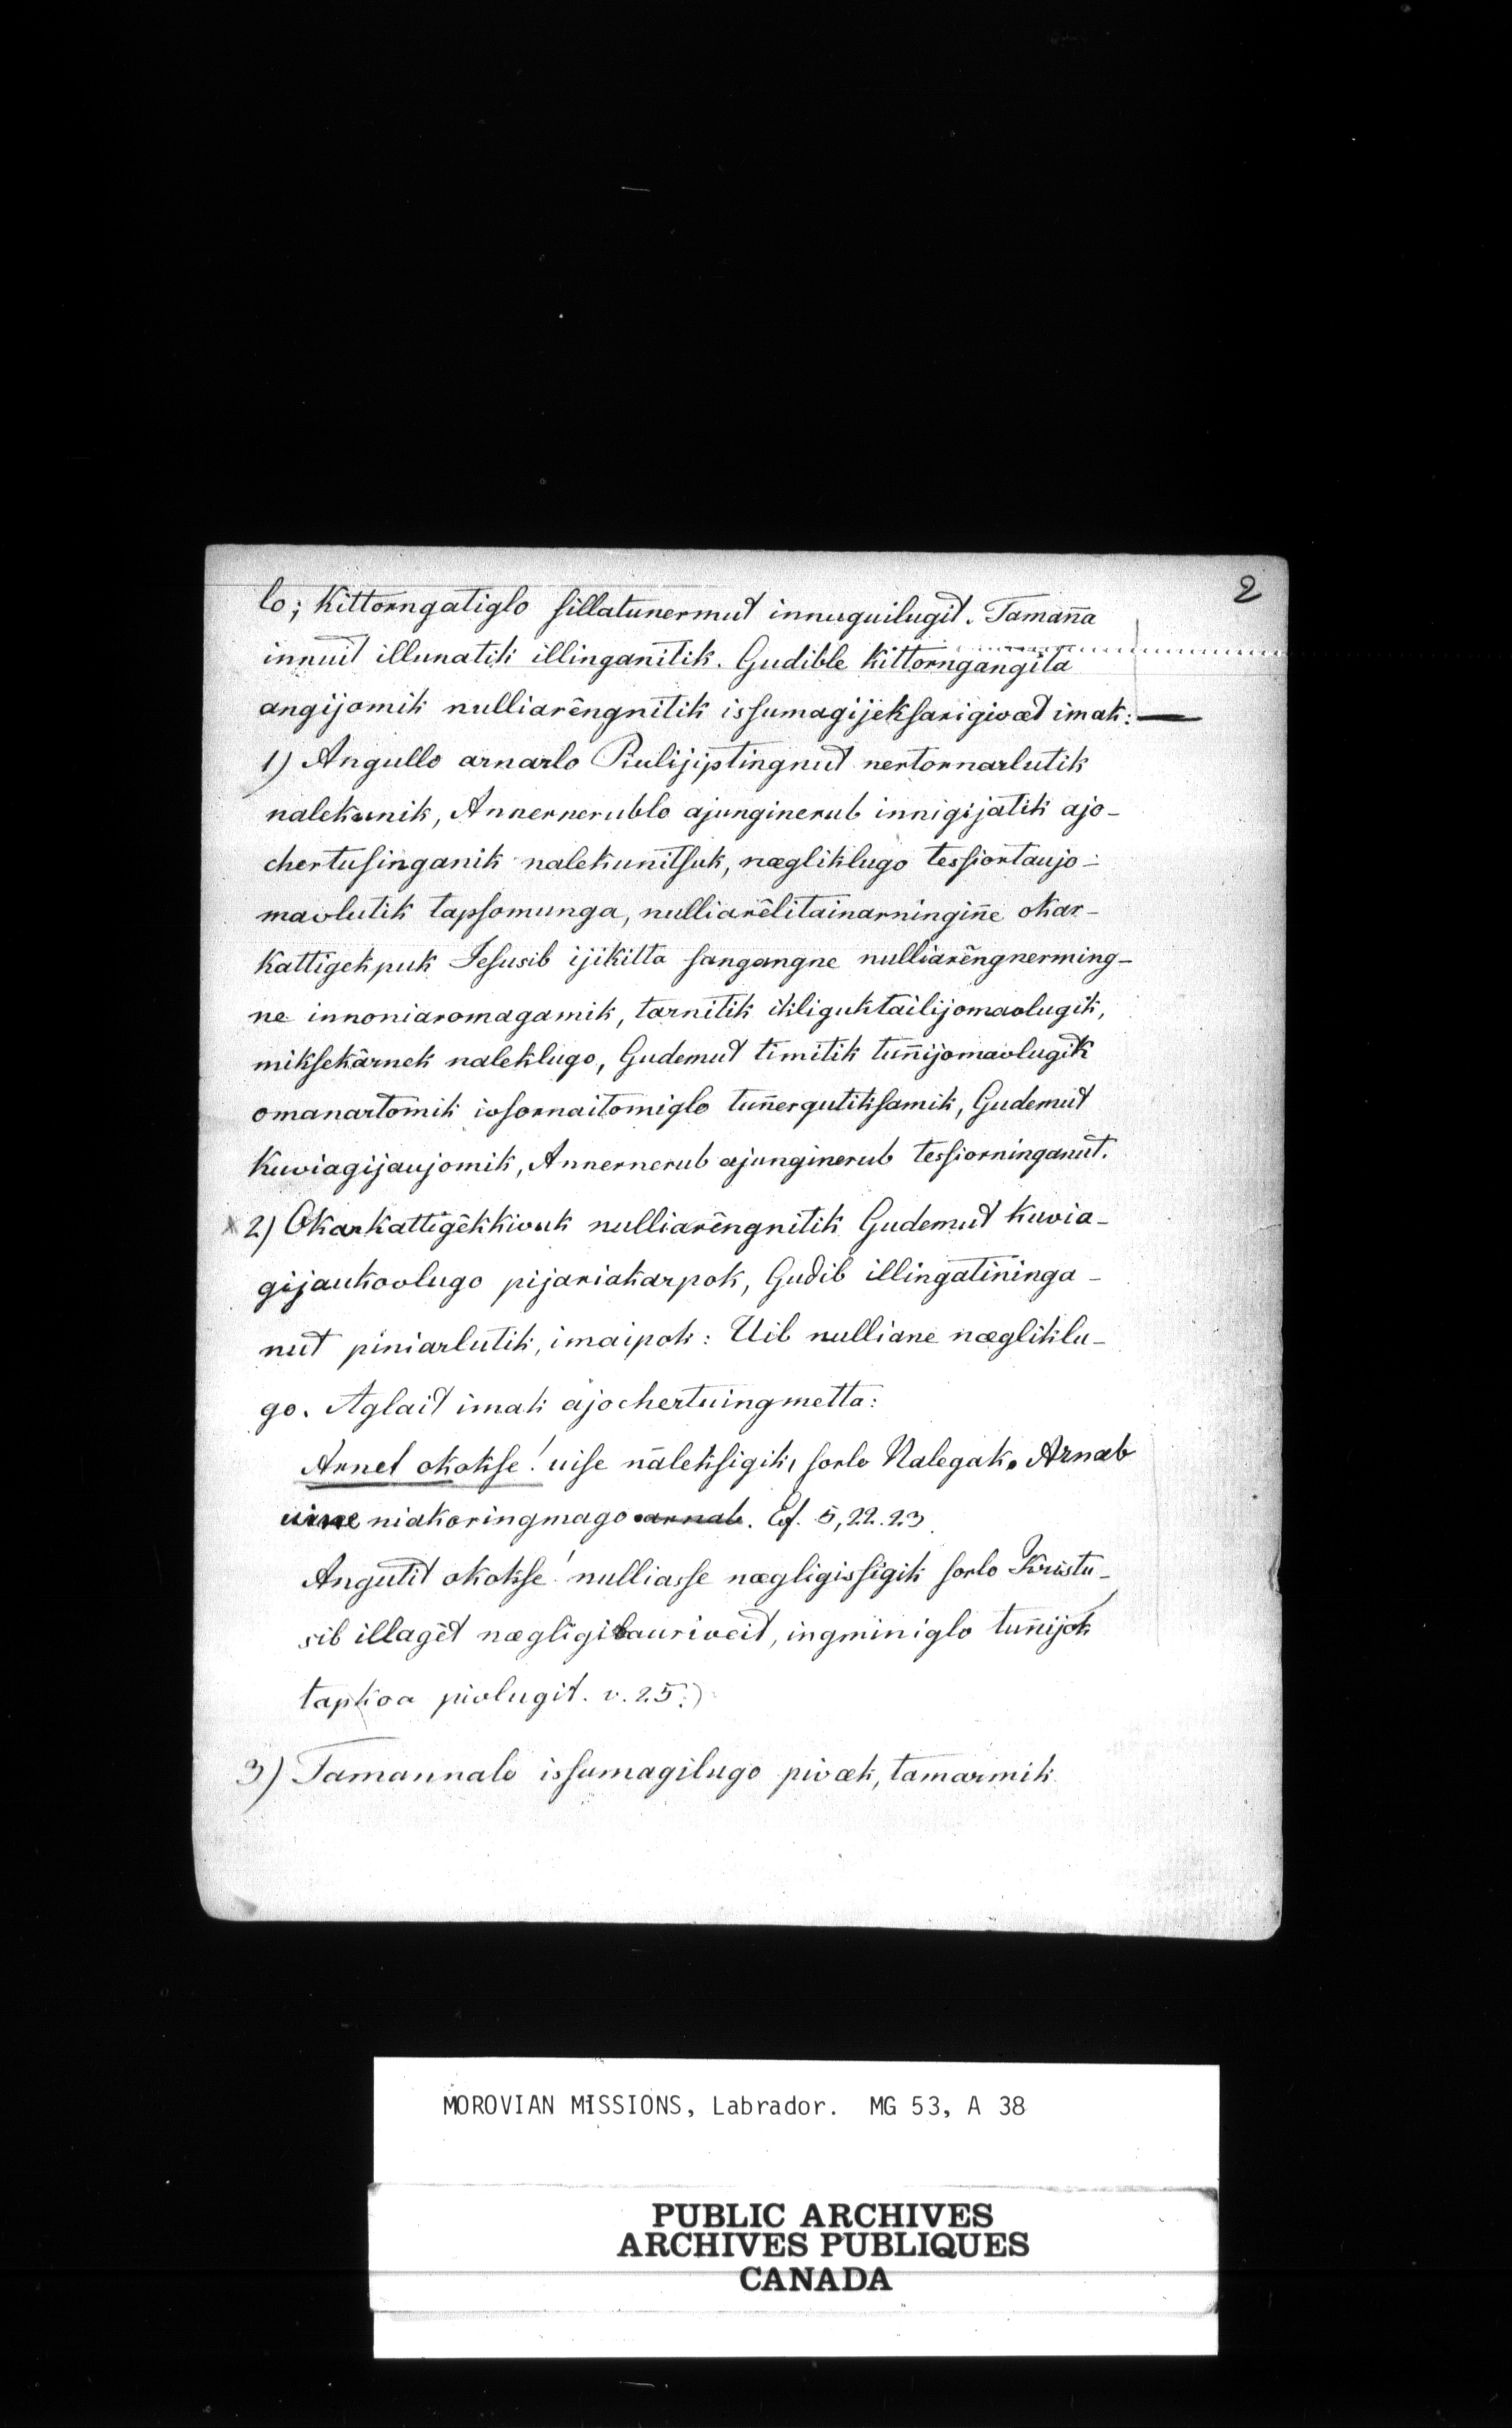 2
lo; Kittorngatiglo sillatunermut innuguilugit. Taman̄a
innuit illunatik illinganitik. Gudible Kittorngangita
angijomik nulliarêngnitik issumagijeksarigivæt imak: —
1) Angullo arnarlo Piulijiptingnut nertornarlutik
nalekunik, Annernerublo ajunginerub innigijatik ajo-
chertusinganik nalekunitsuk, nægliklugo tessiortaujo-
mavlutik tapsomunga, nulliarêlitainarningin̄e okar-
kattigekpuk Jesusib ijikitta sangangne nulliarêngnerming-
ne innoniaromagamik, tarnitik ikliguktailijomavlugik,
miksekârnek naleklugo, Gudemut timitik tun̄ijomavlugik
omanartomik ivsornaitomiglo tun̄ergutiksamik, Gudemut
Kuviagijaujomik, Annernerub ajunginerub tessiorninganut.
x 2) Okarkattigêkkivuk nulliarêngnitik Gudemut kuvia-
gijaukovlugo pijariakarpok, Gudib illingatininga-
nut piniarlutik, imaipok: Uib nulliane nægliklu-
go. Aglait imak ajochertuingmetta:
Arnet okokse! uise naleksigik, sorlo Nalegak. Arnab
uine niakoringmago arnab. Ef. 5, 22. 23.
Angutit okokse! nulliasse nægligissigik sorlo Kristu-
sib illagêt nægligilauriveit, ingminiglo tun̄ijok
tapkoa pivlugit. v. 25.)
3) Tamannalo issumagilugo pivæk, tamarmik
MOROVIAN MISSIONS, Labrador. MG 53, A 38
PUBLIC ARCHIVES
ARCHIVES PUBLIQUES
CANADA